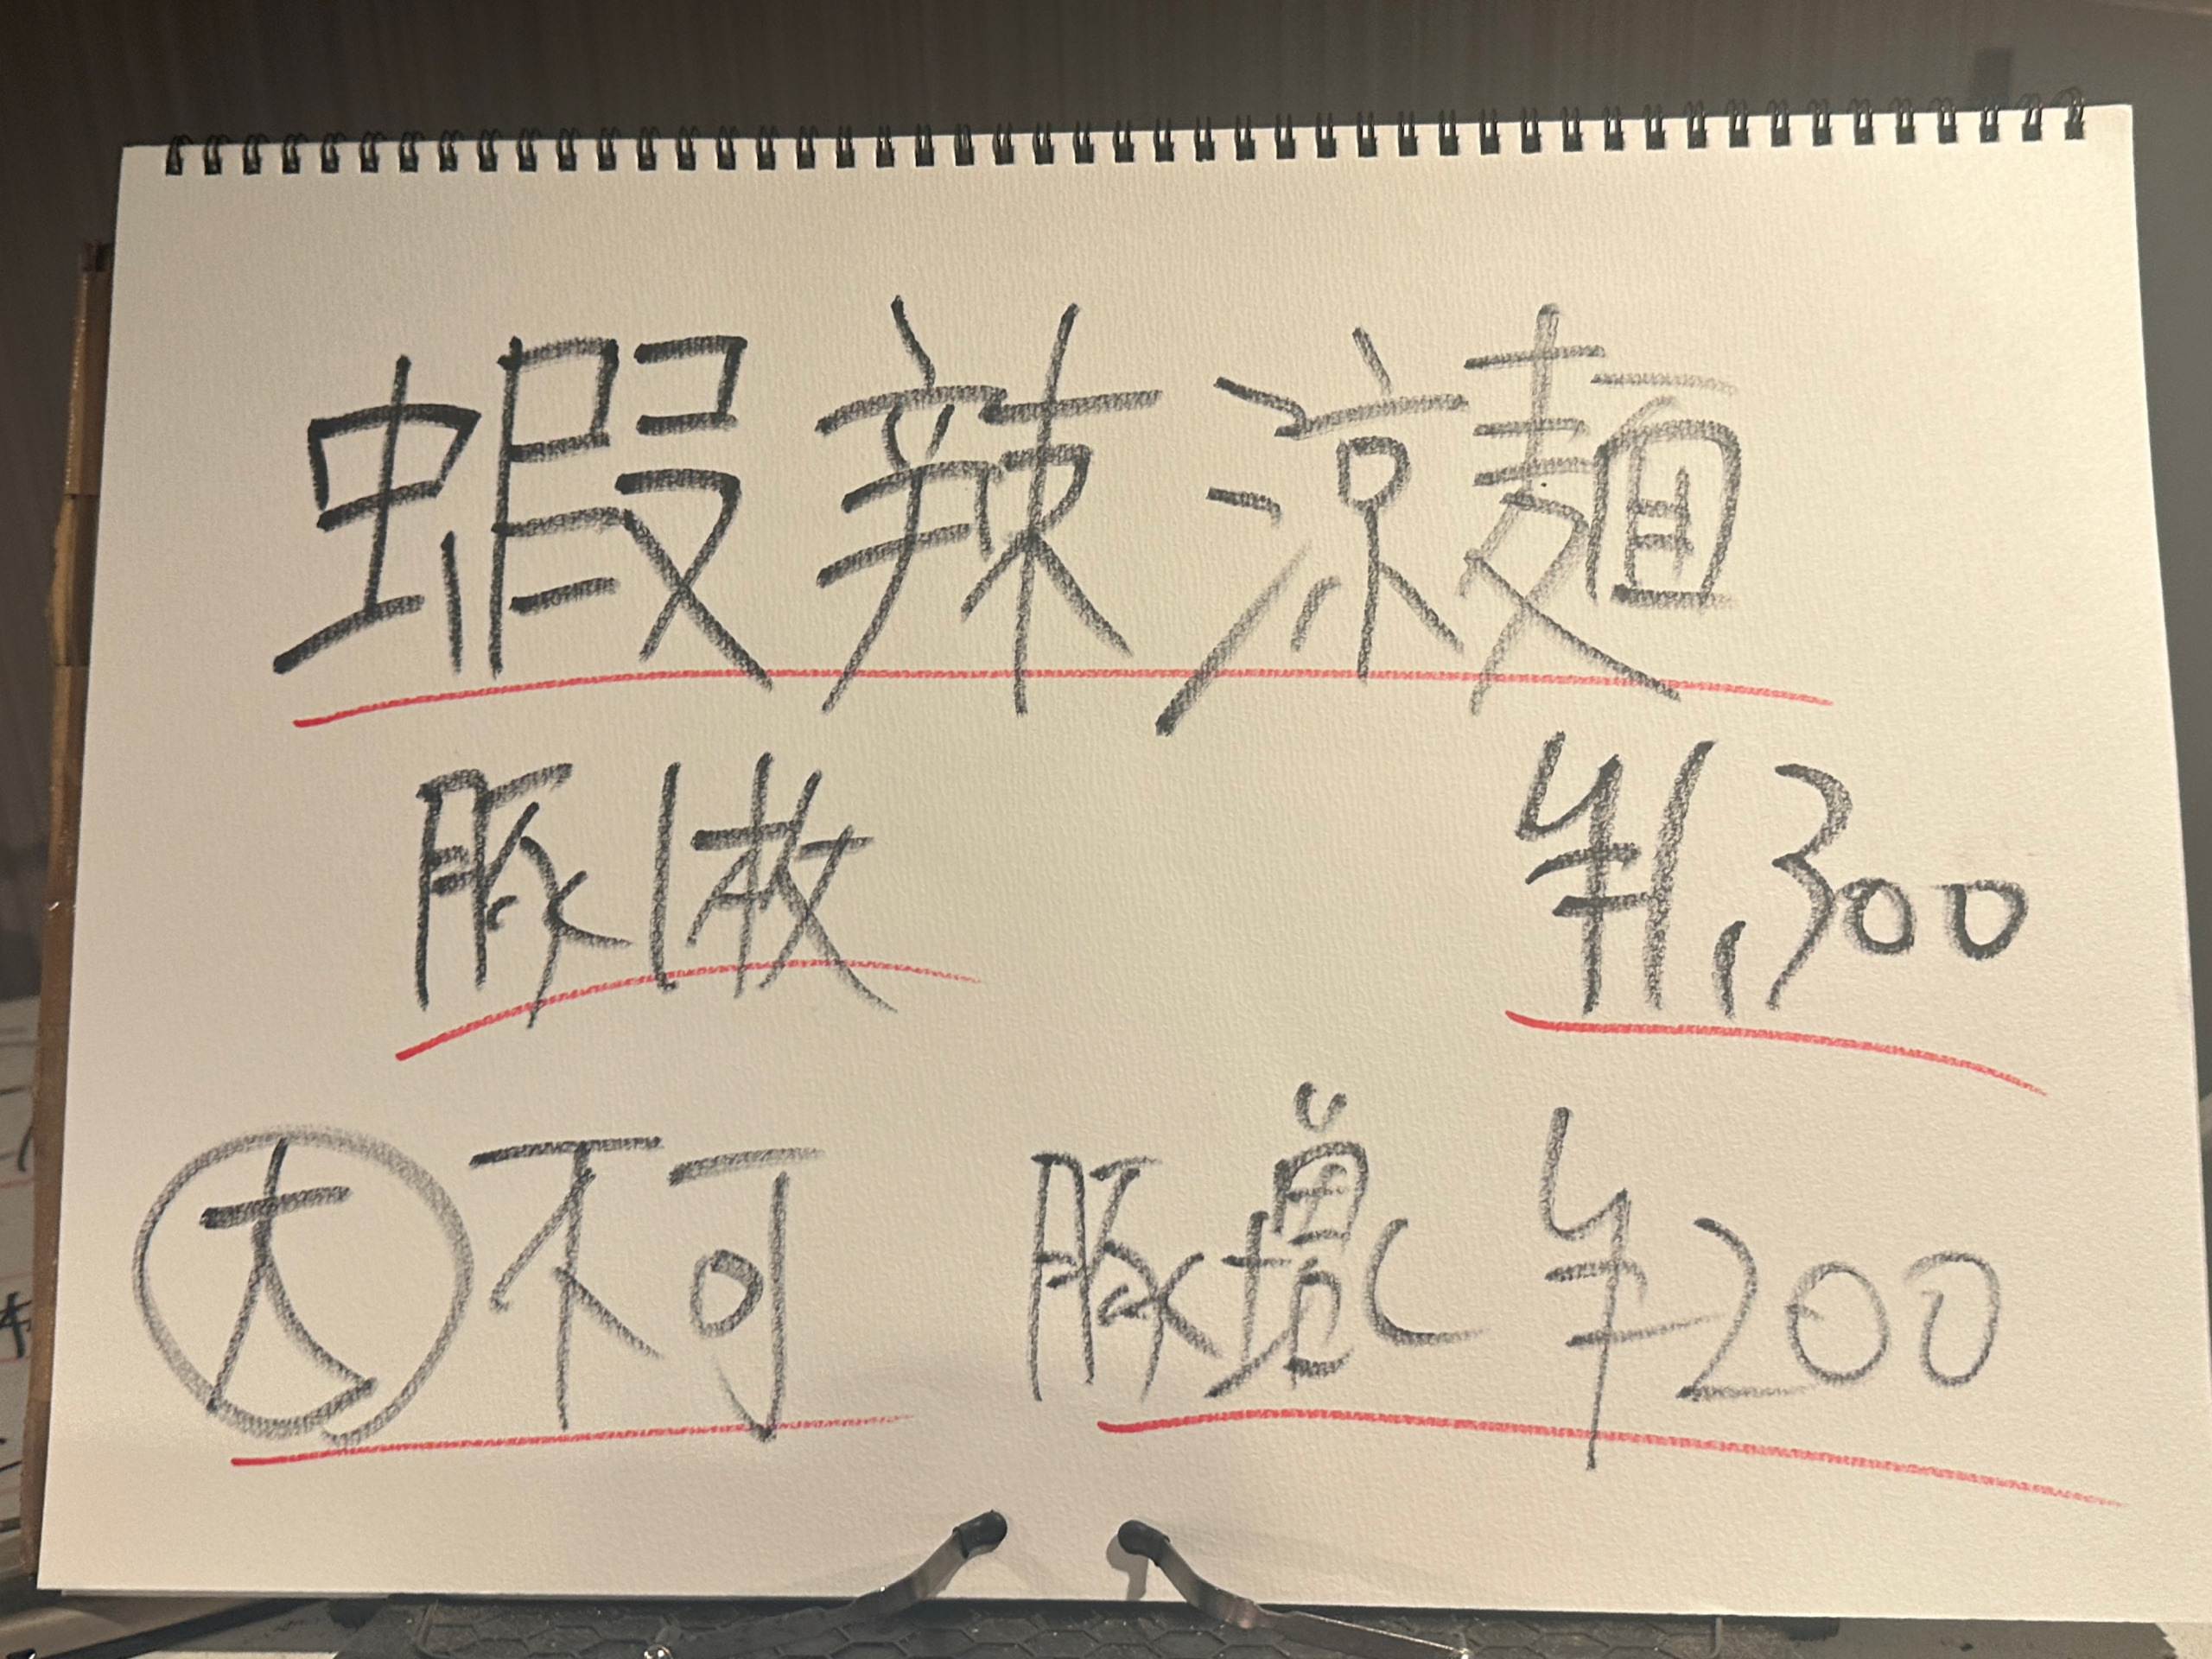 蝦辣涼麺
豚1枚 ¥1,300
大不可 豚増し ¥200